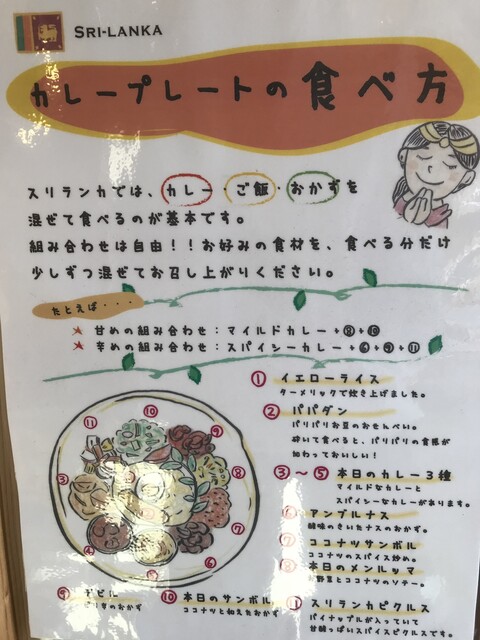 SRI-LANKA
カレープレートの食べ方
スリランカでは、カレー・ご飯・おかずを
混ぜて食べるのが基本です。
組み合わせは自由!!お好みの食材を、食べる分だけ
少しずつ混ぜてお召し上がりください。
たとえば・・・
★ 甘めの組み合わせ:マイルドカレー+⑧+⑩
★ 辛めの組み合わせ:スパイシーカレー+⑥+⑨+⑪
① イエローライス
ターメリックで炊き上げました。
② パパダン
パリパリお豆のおせんべい。
砕いて食べると、パリパリの食感が
加わっておいしい!
③~⑤ 本日のカレー3種
マイルドなカレーと
スパイシーなカレーがあります。
⑥ アンブルナス
酸味のきいたナスのおかず。
⑦ ココナツサンボル
ココナツのスパイス炒め。
⑧ 本日のメンルッマ
野菜とココナツのソテー。
⑨ デビル
おかず
⑩ 本日のサンボル
ココナツと和えたおかず
⑪ スリランカピクルス
パイナップルが入っていて
甘酸っぱいスパイスピクルスです。
⑪
⑩
⑨
⑧
⑦
⑥
④
③